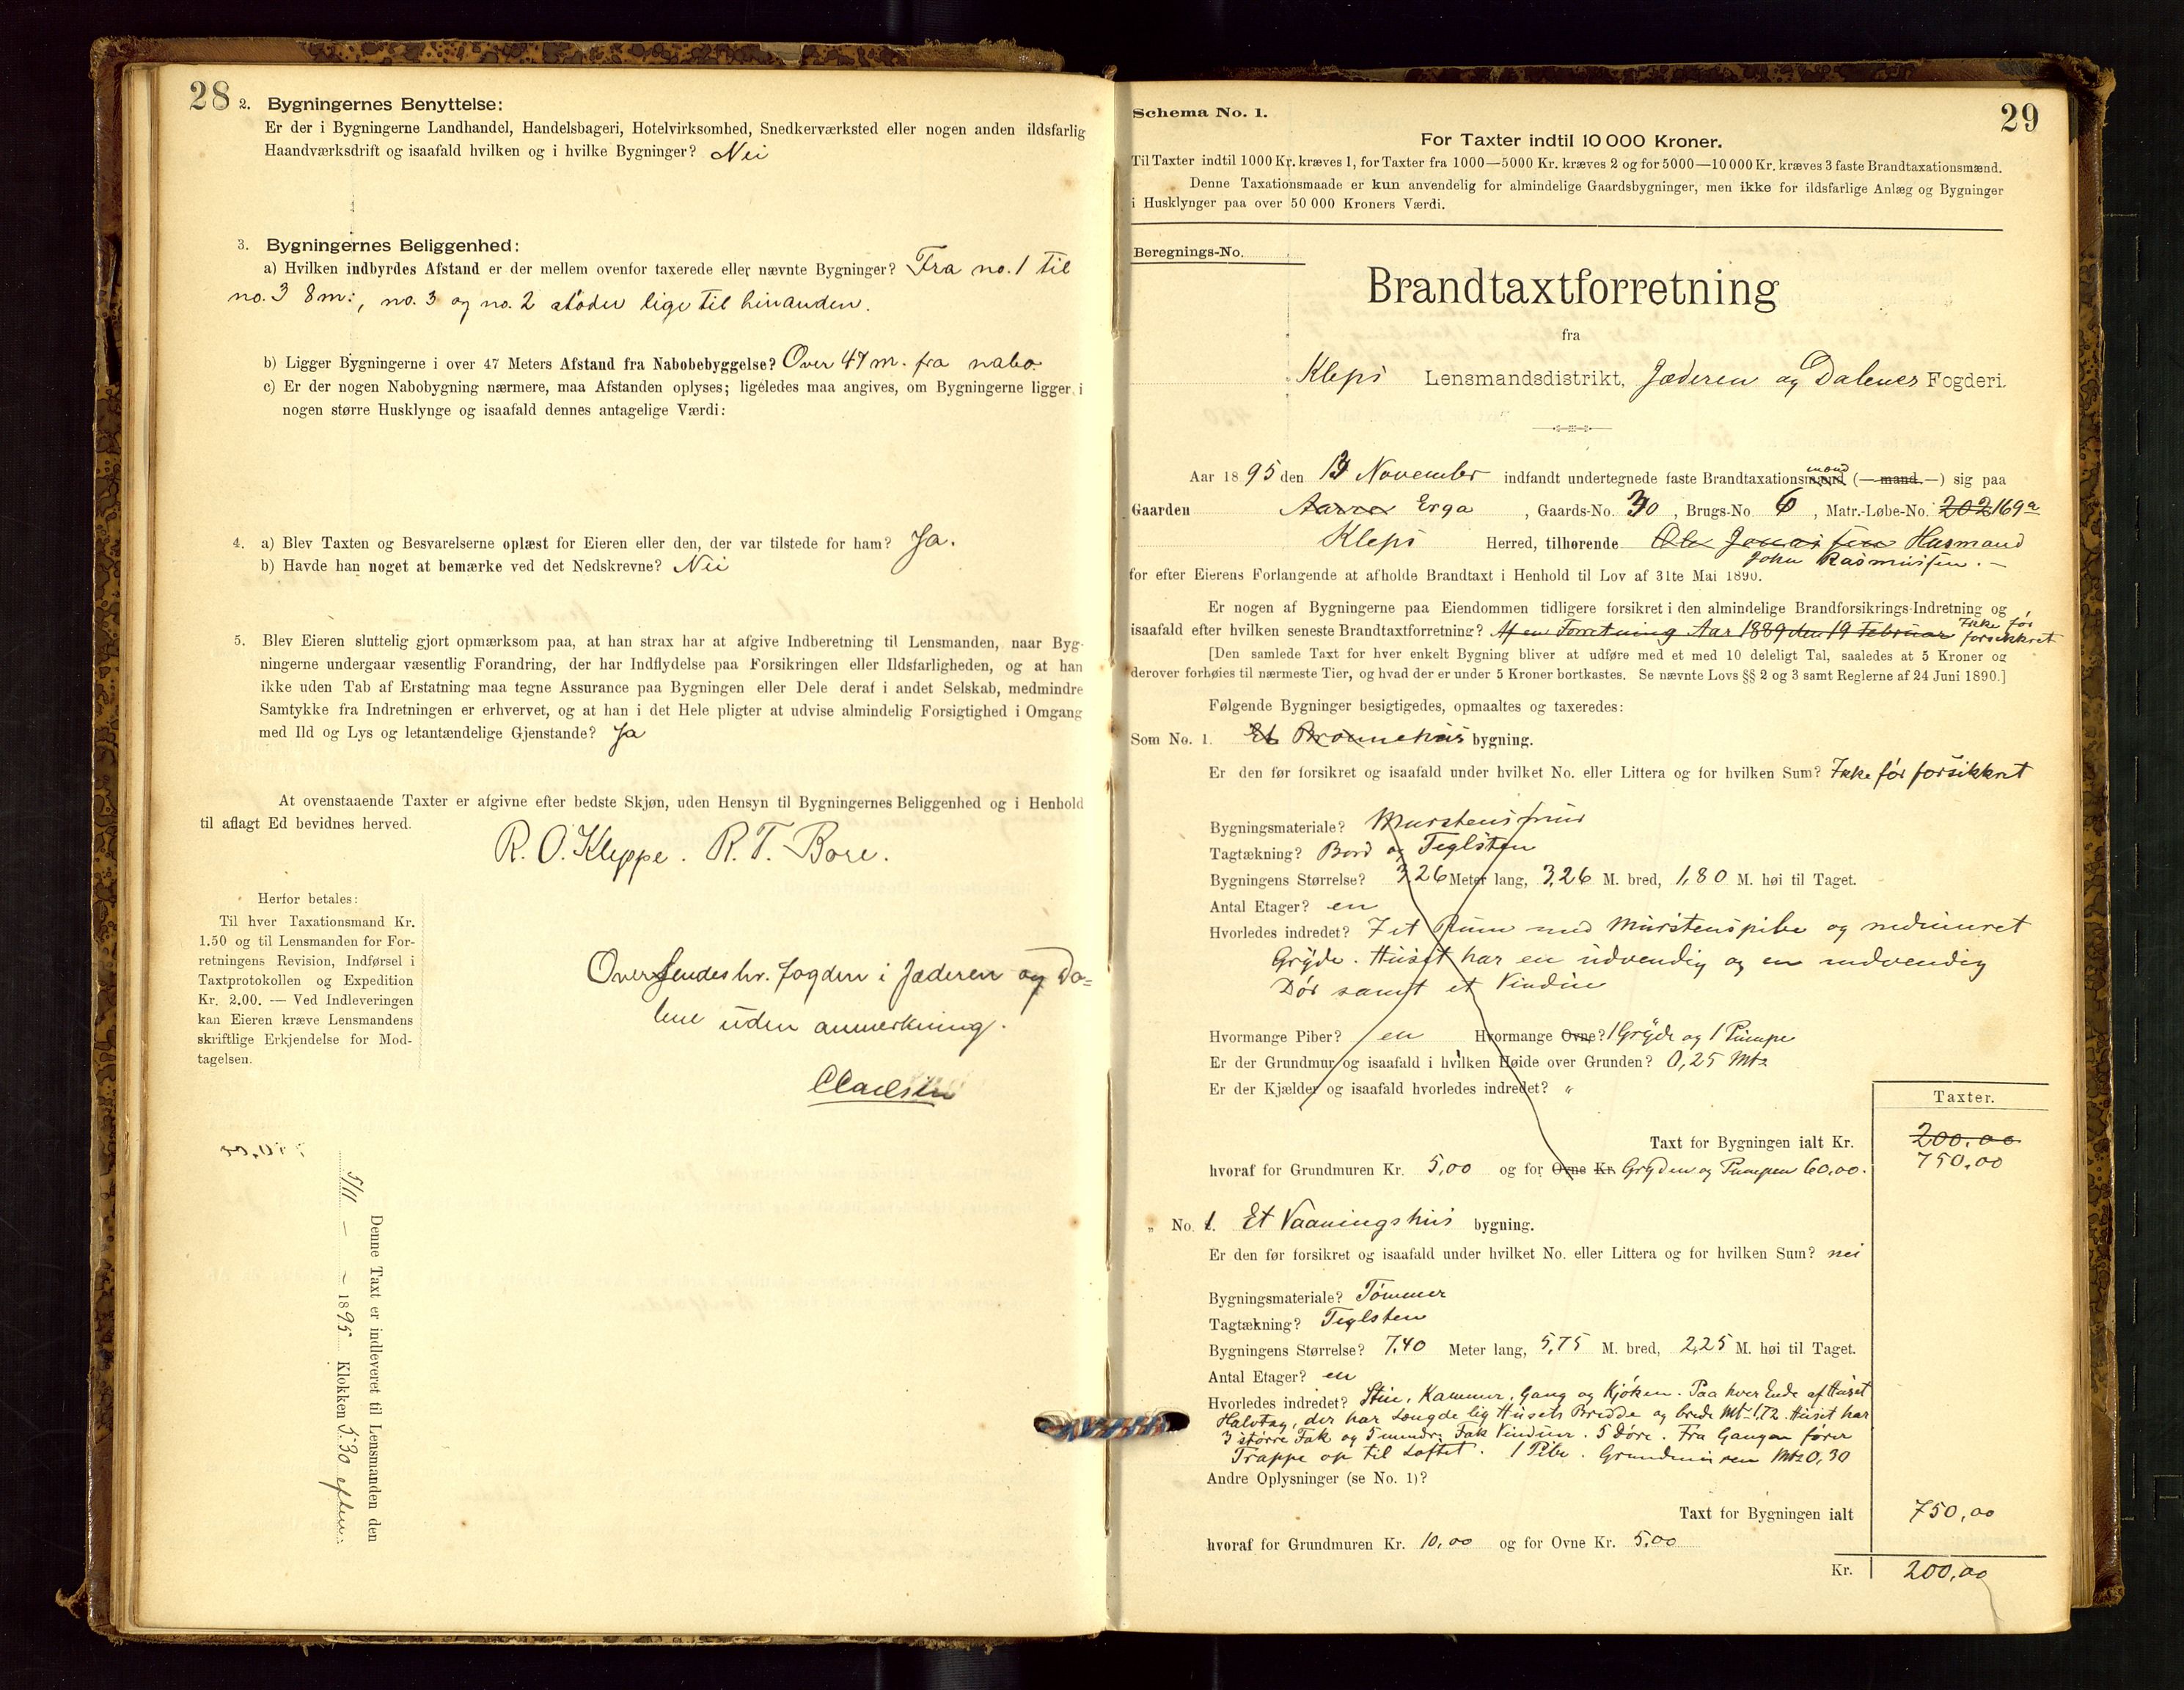 28
2. Bygningernes Benyttelse:
Er der i Bygningerne Landhandel, Handelsbageri, Hotelvirksomhed, Snedkerværksted eller nogen anden ildsfarlig
Haandværksdrift og isaafald hvilken og i hvilke Bygninger? Nei
3. Bygningernes Beliggenhed:
a) Hvilken indbyrdes Afstand er der mellem ovenfor taxerede eller nævnte Bygninger? Fra no. 1 til
no. 3 8 m:, no. 3 og no. 2 støder lige til hinanden.
b) Ligger Bygningerne i over 47 Meters Afstand fra Nabobebyggelse? Over 47 m. fra nabo
c) Er der nogen Nabobygning nærmere, maa Afstanden oplyses; ligeledes maa angives, om Bygningerne ligger i
nogen større Husklynge og isaafald dennes antagelige Værdi:
4. a) Blev Taxten og Besvarelserne oplæst for Eieren eller den, der var tilstede for ham? Ja.
b) Havde han noget at bemærke ved det Nedskrevne? Nei
5. Blev Eieren sluttelig gjort opmærksom paa, at han strax har at afgive Indberetning til Lensmanden, naar Byg-
ningerne undergaar væsentlig Forandring, der har Indflydelse paa Forsikringen eller Ildsfarligheden, og at han
ikke uden Tab af Erstatning maa tegne Assurance paa Bygningen eller Dele deraf i andet Selskab, medmindre
Samtykke fra Indretningen er erhvervet, og at han i det Hele pligter at udvise almindelig Forsigtighed i Omgang
med Ild og Lys og letantændelige Gjenstande? Ja
At ovenstaaende Taxter er afgivne efter bedste Skjøn, uden Hensyn til Bygningernes Beliggenhed og i Henhold
til aflagt Ed bevidnes herved.
R. O. Kleppe. R. T. Bore.
Herfor betales:
Til hver Taxationsmand Kr.
1.50 og til Lensmanden for For-
retningens Revision, Indførsel i
Taxtprotokollen og Expedition
Kr. 2.00. — Ved Indleveringen
kan Eieren kræve Lensmandens
skriftlige Erkjendelse for Mod-
tagelsen.
Oversendes hr. fogden i Jæderen og Da-
lene uden anmerkning.
Denne Taxt er indleveret til Lensmanden den
5/11 — - 1895 Klokken 5.30 eftm.
29
Schema No. 1.
For Taxter indtil 10 000 Kroner.
Til Taxter indtil 1000 Kr. kræves 1, for Taxter fra 1000—5000 Kr. kræves 2 og for 5000—10 000 Kr. kræves 3 faste Brandtaxationsmænd.
Denne Taxationsmaade er kun anvendelig for almindelige Gaardsbygninger, men ikke for ildsfarlige Anlæg og Bygninger
i Husklynger paa over 50 000 Kroners Værdi.
Beregnings-No.
Brandtaxtforretning
fra
Kleps Lensmandsdistrikt, Jæderen og Dalenes Fogderi.
Aar 1895 den November indfandt undertegnede faste Brandtaxationsmænd mand (— mand. —) sig paa
Gaarden Erga, Gaards-No. 30, Brugs-No. 6, Matr.-Løbe-No. 202 169a
Kleps Herred, tilhørende Husmand
John Rasmussen. —
for efter Eierens Forlangende at afholde Brandtaxt i Henhold til Lov af 31te Mai 1890.
Er nogen af Bygningerne paa Eiendommen tidligere forsikret i den almindelige Brandforsikrings-Indretning og
isaafald efter hvilken seneste Brandtaxtforretning? Af en Forretning Aar 1889 den 19 Februar Ikke før
forsikkret
[Den samlede Taxt for hver enkelt Bygning bliver at udføre med et med 10 deleligt Tal, saaledes at 5 Kroner og
derover forhøies til nærmeste Tier, og hvad der er under 5 Kroner bortkastes. Se nævnte Lovs §§ 2 og 3 samt Reglerne af 24 Juni 1890.]
Følgende Bygninger besigtigedes, opmaaltes og taxeredes:
Som No. 1. Et Brønnehus bygning.
Er den før forsikret og isaafald under hvilket No. eller Littera og for hvilken Sum? Ikke før forsikkret
Bygningsmateriale? Murstensmur
Tagtækning? Bord og Teglsten
Bygningens Størrelse? 3,26 Meter lang, 3,26 M. bred, 1,80 M. høi til Taget.
Antal Etager? en
Hvorledes indredet? I et Rum med Murstenspibe og nedmuret
Gryde. Huset har en udvendig og en indvendig
Dør samt et Vindue
Hvormange Piber? en Hvormange Ovne? 1 Gryde og 1 Pumpe
Er der Grundmur og isaafald i hvilken Høide over Grunden? 0,25 Mtr
Er der Kjælder og isaafald hvorledes indredet? "
Taxter.
Taxt for Bygningen ialt Kr. 200.00
750,00
hvoraf for Grundmuren Kr. 5,00 og for Ovne Kr. Gryden og Pumpen 60,00.
„ No. 1. Et Vaaningshus bygning.
Er den før forsikret og isaafald under hvilket No. eller Littera og for hvilken Sum? nei
Bygningsmateriale? Tømmer
Tagtækning? Teglsten
Bygningens Størrelse? 7,40 Meter lang, 5,75 M. bred, 2,25 M. høi til Taget.
Antal Etager? en
Hvorledes indredet? Stue, Kammer, Gang og Kjøken. Paa hver Ende af Huset
Halvtag, der har Længde lig Husets Bredde og brede Mtr 1,72. Huset har
3 større Fak og 5 mindre Fak Vinduer. 5 Døre. Fra Gangen fører
Trappe op til Loftet. 1 Pibe. Grundmuren Mtr 0,30
Andre Oplysninger (se No. 1)?
Taxt for Bygningen ialt 750,00
hvoraf for Grundmuren Kr. 10,00 og for Ovne Kr. 5,00
Kr. 200,00